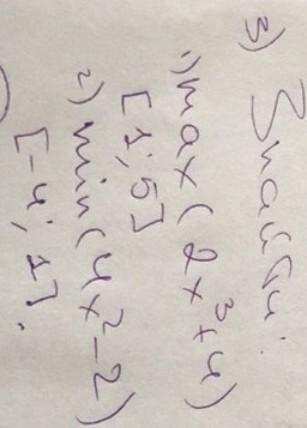 3) Знайди:
1) max (2x³+4)
[1; 5]
2) min (4x²-2)
[-4; 1].